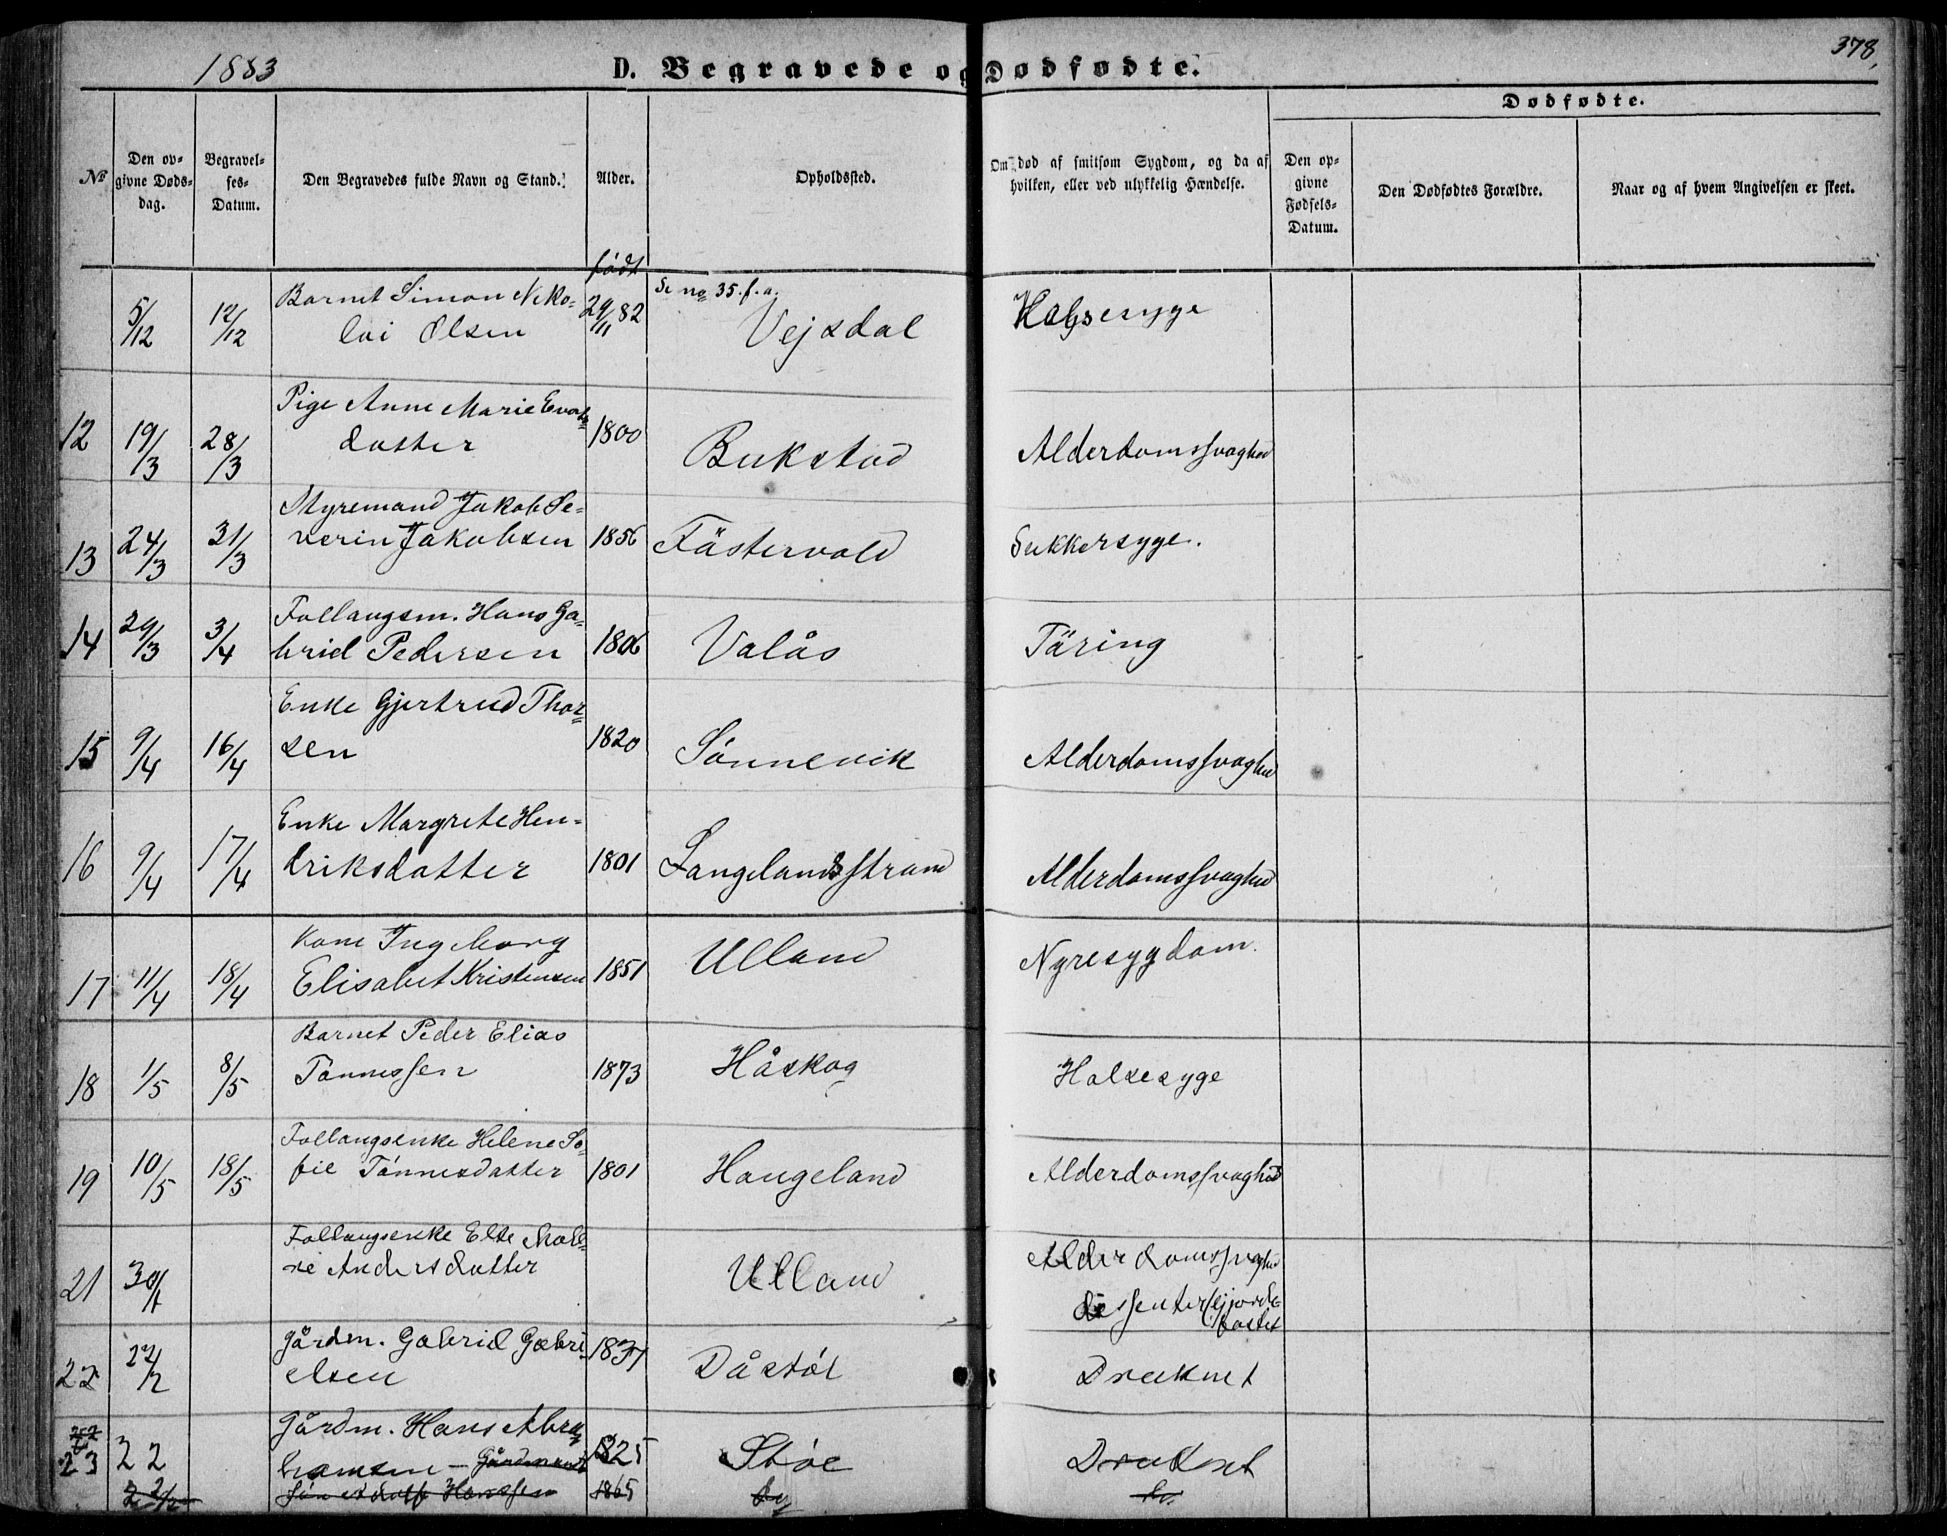 1883
D. Begravede og Dødfødte.
378,
Dødfødte.
No
Den op-
givne Døds-
dag.
Begravel-
ses-
Datum.
Den Begravedes fulde Navn og Stand.
Alder.
Opholdssted.
Om død af smitsom Sygdom, og da af
hvilken, eller ved ulykkelig Hændelse.
Den op-
givne
Fødsels-
Datum.
Den Dødfødtes Forældre.
Naar og af hvem Angivelsen er skeet.
født
Se no 35. f. a.
5/12 12/12 Barnet Simon Niko-
lai Olsen 29/11 82 Vejsdal Halsesyge
12 19/3 28/3 Pige Anne Marie
datter 1800 Bukstad Alderdomssvaghed
13 24/3 31/3 Myremand Jakob Se-
verin Jakobsen 1856 Fästervold Sukkersyge.
14 29/3 3/4 Follaugsm. Hans Ga-
briel Pedersen 1806 Valås Täring
15 9/4 16/4 Enke Gjertrud Thor-
sen 1820 Sønnevik Alderdomssvaghed
16 9/4 17/4 Enke Margrete Hen-
driksdatter 1801 Langelandsstrand Alderdomssvaghed
17 11/4 18/4 Kone Ingeborg
Elisabet Kristensen 1851 Ulland Nyresygdom.
18 1/5 8/5 Barnet Peder Elias
Tønnessen 1873 Håskog Halsesyge
19 10/5 18/5 Follaugsenke Helene So-
fie Tønnesdatter 1801 Haugeland Alderdomssvaghed
21 30/1 Follaugsenke Else
Andersdatter Ulland Alderdomssvaghed
dissenter
22 22/2 Gårdm. Gabriel Gabri-
elsen 1837 Dåstøl Druknet
22
23 22 Gårdm. Hans Abra-
hamsen – Gårdmand 1825 Støe Druknet
22/2 Søn Hanssen 1865 do.